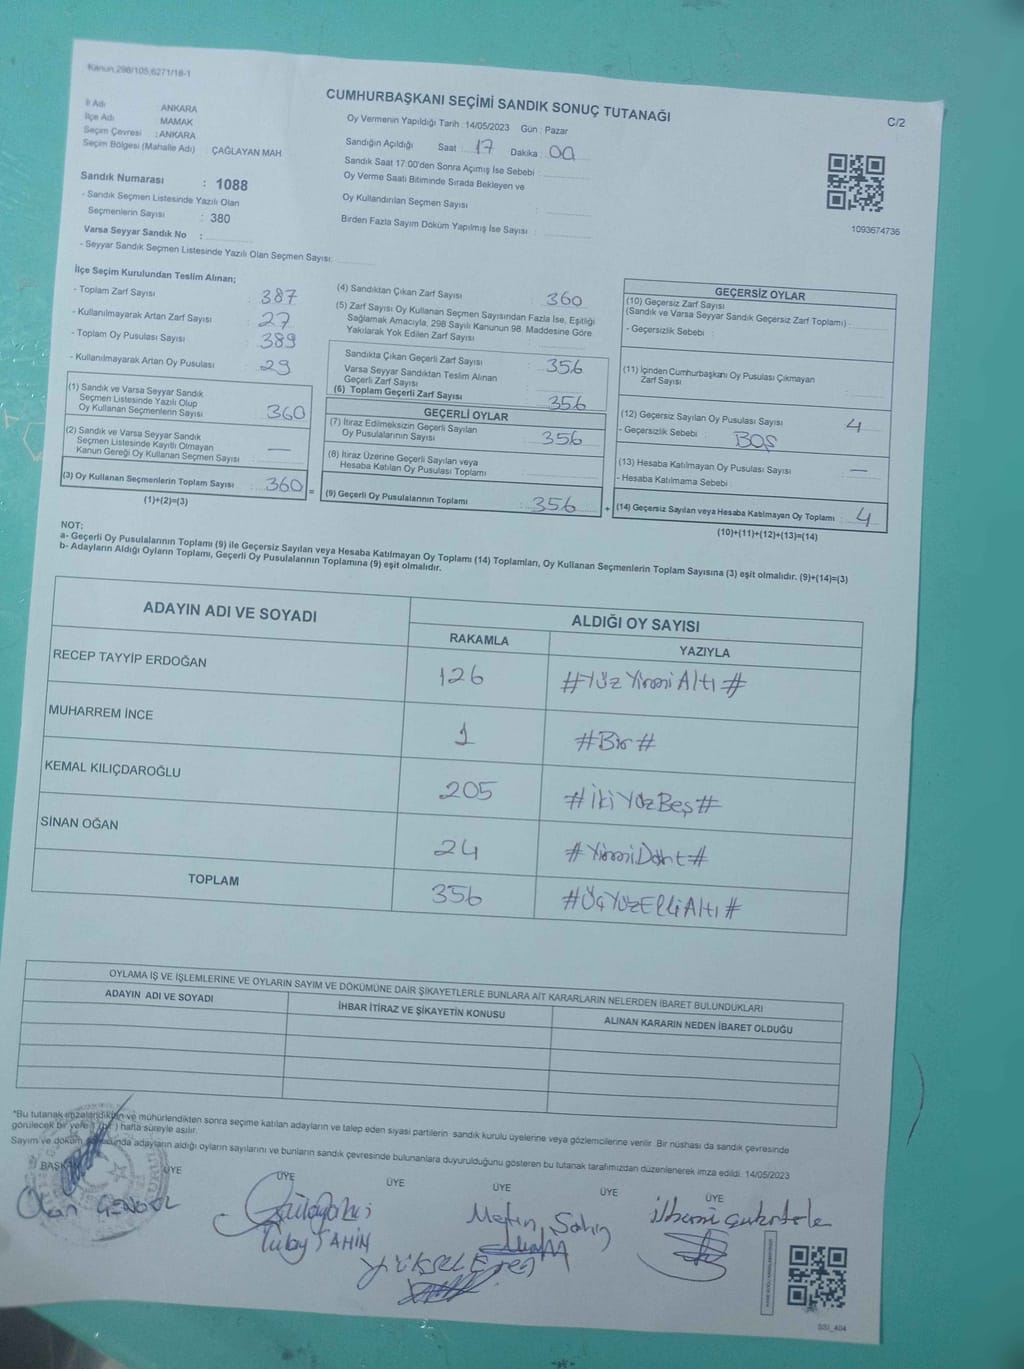 Kanun,298/105;6271/18-1
CUMHURBAŞKANI SEÇİMİ SANDIK SONUÇ TUTANAĞI
C/2
İl Adı ANKARA
İlçe Adı MAMAK
Seçim Çevresi : ANKARA
Seçim Bölgesi (Mahalle Adı) : ÇAĞLAYAN MAH.
Oy Vermenin Yapıldığı Tarih : 14/05/2023 Gün : Pazar
Sandığın Açıldığı Saat : 17 Dakika : 00
Sandık Saat 17:00'den Sonra Açımış İse Sebebi :
Oy Verme Saati Bitiminde Sırada Bekleyen ve
Oy Kullandırılan Seçmen Sayısı :
Birden Fazla Sayım Döküm Yapılmış İse Sayısı :
1093674736
Sandık Numarası : 1088
- Sandık Seçmen Listesinde Yazılı Olan
Seçmenlerin Sayısı : 380
Varsa Seyyar Sandık No :
- Seyyar Sandık Seçmen Listesinde Yazılı Olan Seçmen Sayısı:
İlçe Seçim Kurulundan Teslim Alınan;
- Toplam Zarf Sayısı : 387
- Kullanılmayarak Artan Zarf Sayısı : 27
- Toplam Oy Pusulası Sayısı : 389
- Kullanılmayarak Artan Oy Pusulası : 29
(1) Sandık ve Varsa Seyyar Sandık
Seçmen Listesinde Yazılı Olup
Oy Kullanan Seçmenlerin Sayısı : 360
(2) Sandık ve Varsa Seyyar Sandık
Seçmen Listesinde Kayıtlı Olmayan
Kanun Gereği Oy Kullanan Seçmen Sayısı : —
(3) Oy Kullanan Seçmenlerin Toplam Sayısı : 360 =
(1)+(2)=(3)
(4) Sandıktan Çıkan Zarf Sayısı : 360
(5) Zarf Sayısı Oy Kullanan Seçmen Sayısından Fazla İse, Eşitliği
Sağlamak Amacıyla, 298 Sayılı Kanunun 98. Maddesine Göre
Yakılarak Yok Edilen Zarf Sayısı :
Sandıkta Çıkan Geçerli Zarf Sayısı : 356
Varsa Seyyar Sandıktan Teslim Alınan
Geçerli Zarf Sayısı :
(6) Toplam Geçerli Zarf Sayısı : 356
GEÇERLİ OYLAR
(7) İtiraz Edilmeksizin Geçerli Sayılan
Oy Pusulalarının Sayısı : 356
(8) İtiraz Üzerine Geçerli Sayılan veya
Hesaba Katılan Oy Pusulası Toplamı :
(9) Geçerli Oy Pusulalarının Toplamı : 356 +
GEÇERSİZ OYLAR
(10) Geçersiz Zarf Sayısı
(Sandık ve Varsa Seyyar Sandık Geçersiz Zarf Toplamı) :
- Geçersizlik Sebebi :
(11) İçinden Cumhurbaşkanı Oy Pusulası Çıkmayan
Zarf Sayısı :
(12) Geçersiz Sayılan Oy Pusulası Sayısı : 4
- Geçersizlik Sebebi : BOŞ
(13) Hesaba Katılmayan Oy Pusulası Sayısı : —
- Hesaba Katılmama Sebebi :
(14) Geçersiz Sayılan veya Hesaba Katılmayan Oy Toplamı : 4
(10)+(11)+(12)+(13)=(14)
NOT:
a- Geçerli Oy Pusulalarının Toplamı (9) ile Geçersiz Sayılan veya Hesaba Katılmayan Oy Toplamı (14) Toplamları, Oy Kullanan Seçmenlerin Toplam Sayısına (3) eşit olmalıdır. (9)+(14)=(3)
b- Adayların Aldığı Oyların Toplamı, Geçerli Oy Pusulalarının Toplamına (9) eşit olmalıdır.
ADAYIN ADI VE SOYADI
ALDIĞI OY SAYISI
RAKAMLA YAZIYLA
RECEP TAYYİP ERDOĞAN 126 #Yüz Yirmi Altı#
MUHARREM İNCE 1 #Bir#
KEMAL KILIÇDAROĞLU 205 #İki Yüz Beş#
SİNAN OĞAN 24 #Yirmi Dört#
TOPLAM 356 #Üç Yüz Elli Altı#
OYLAMA İŞ VE İŞLEMLERİNE VE OYLARIN SAYIM VE DÖKÜMÜNE DAİR ŞİKAYETLERLE BUNLARA AİT KARARLARIN NELERDEN İBARET BULUNDUKLARI
ADAYIN ADI VE SOYADI İHBAR İTİRAZ VE ŞİKAYETİN KONUSU ALINAN KARARIN NEDEN İBARET OLDUĞU
*Bu tutanak imzalandıktan ve mühürlendikten sonra seçime katılan adayların ve talep eden siyasi partilerin sandık kurulu üyelerine veya gözlemcilerine verilir. Bir nüshası da sandık çevresinde
görülecek bir yere 1 (bir) hafta süreyle asılır.
Sayım ve döküm sonunda adayların aldığı oyların sayılarını ve bunların sandık çevresinde bulunanlara duyurulduğunu gösteren bu tutanak tarafımızdan düzenlenerek imza edildi. 14/05/2023
BAŞKAN ÜYE ÜYE ÜYE ÜYE ÜYE ÜYE
Metin Şahin
Tuby ŞAHİN
YÜKSEL
SSI_404